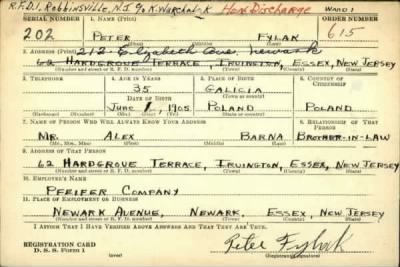 R.F.D.1, Robbinsville, N.J. c/o K. Warchal-K Hon Discharge WARD 1
SERIAL NUMBER 1. NAME (Print) ORDER NUMBER
202 PETER FYLAK 615
2. ADDRESS (Print) 212 Elizabeth Ave, Newark
62 HARDGROVE TERRACE, IRVINGTON, ESSEX, NEW JERSEY
(Number and street or R. F. D. number) (Town) (County) (State)
3. TELEPHONE 4. AGE IN YEARS 5. PLACE OF BIRTH 6. COUNTRY OF CITIZENSHIP
35 GALICIA
DATE OF BIRTH (Town or county)
JUNE 1905 POLAND POLAND
(Exchange) (Number) (Mo.) (Day) (Yr.) (State or country)
7. NAME OF PERSON WHO WILL ALWAYS KNOW YOUR ADDRESS 8. RELATIONSHIP OF THAT PERSON
MR. ALEX BARNA BROTHER-IN-LAW
(Mr., Mrs., Miss) (First) (Middle) (Last)
9. ADDRESS OF THAT PERSON
62 HARDGROVE TERRACE, IRVINGTON, ESSEX, NEW JERSEY
(Number and street or R. F. D. number) (Town) (County) (State)
10. EMPLOYER'S NAME
PFEIFER COMPANY
11. PLACE OF EMPLOYMENT OR BUSINESS
NEWARK AVENUE, NEWARK, ESSEX, NEW JERSEY
(Number and street or R. F. D. number) (Town) (County) (State)
I AFFIRM THAT I HAVE VERIFIED ABOVE ANSWERS AND THAT THEY ARE TRUE.
REGISTRATION CARD
D. S. S. Form 1 (over) Peter Fylak
(Registrant's signature)